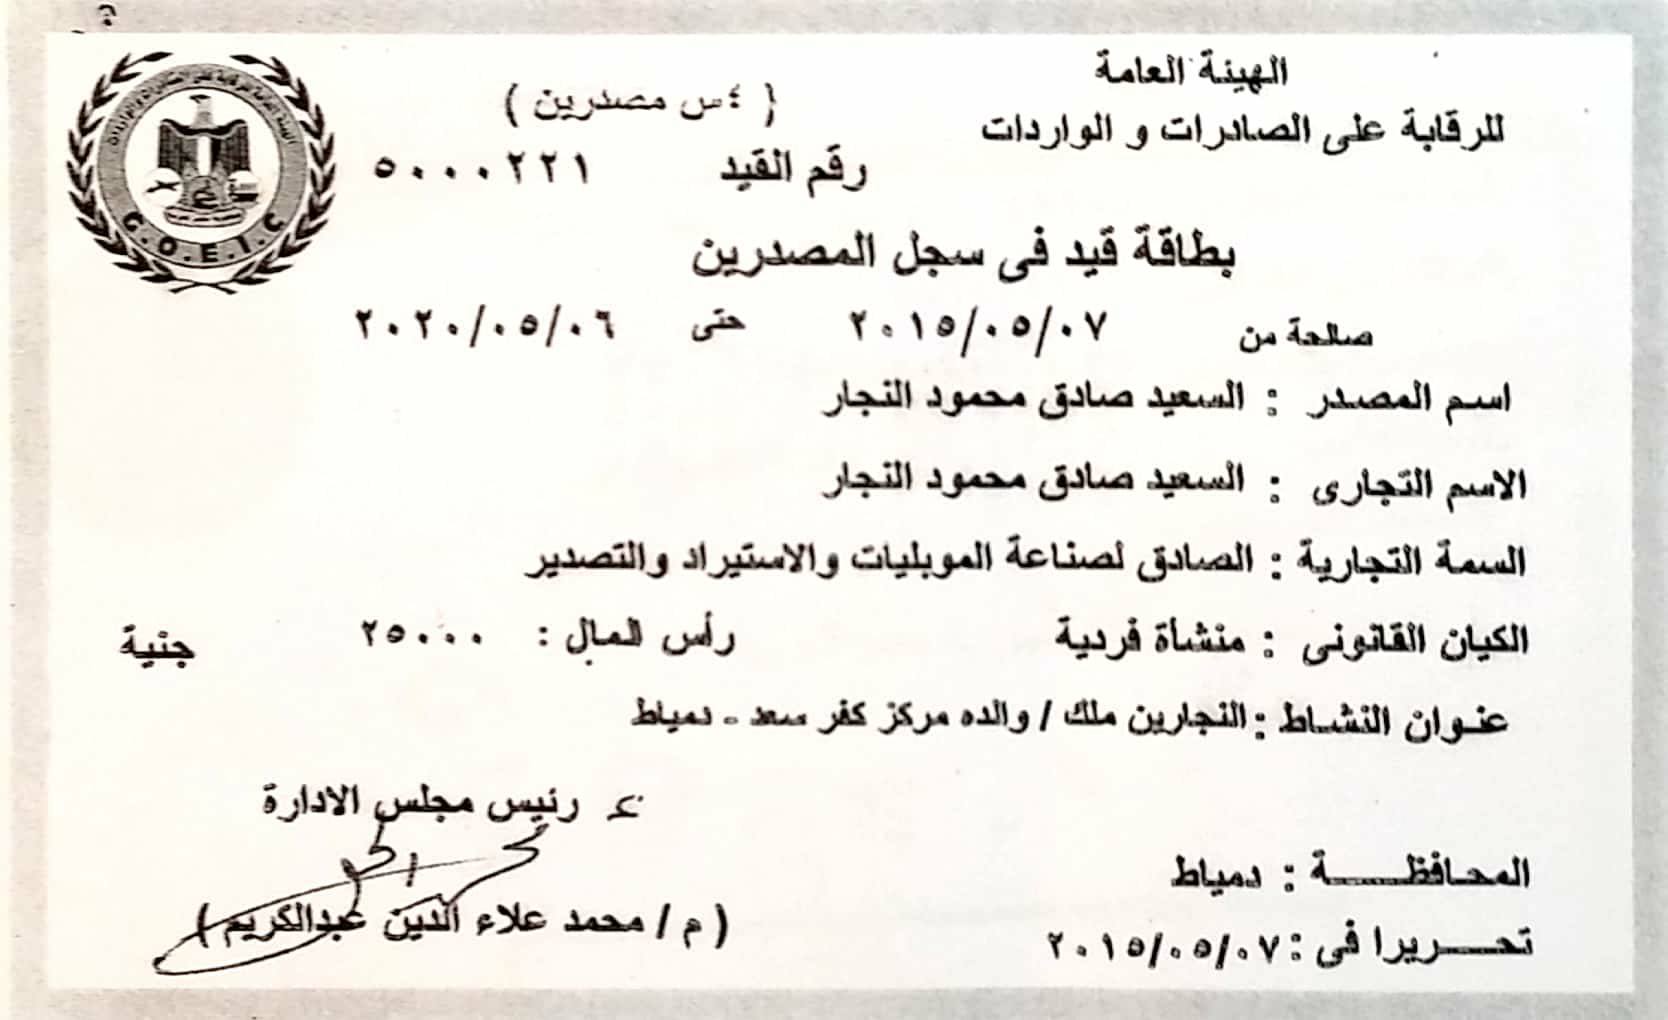 الهيئة العامة
للرقابة على الصادرات و الواردات
( ٤س مصدرين )
رقم القيد ٥٠٠٠٢٢١
G.O.E.I.C
بطاقة قيد فى سجل المصدرين
صالحة من ٢٠١٥/٠٥/٠٧ حتى ٢٠٢٠/٠٥/٠٦
اسم المصدر : السعيد صادق محمود النجار
الاسم التجارى : السعيد صادق محمود النجار
السمة التجارية : الصادق لصناعة الموبليات والاستيراد والتصدير
الكيان القانونى : منشأة فردية رأس المال : ٢٥٠٠٠ جنية
عنوان النشاط : النجارين ملك / والده مركز كفر سعد - دمياط
رئيس مجلس الادارة
( م / محمد علاء الدين عبدالكريم )
المحافظة : دمياط
تحريرا فى : ٢٠١٥/٠٥/٠٧